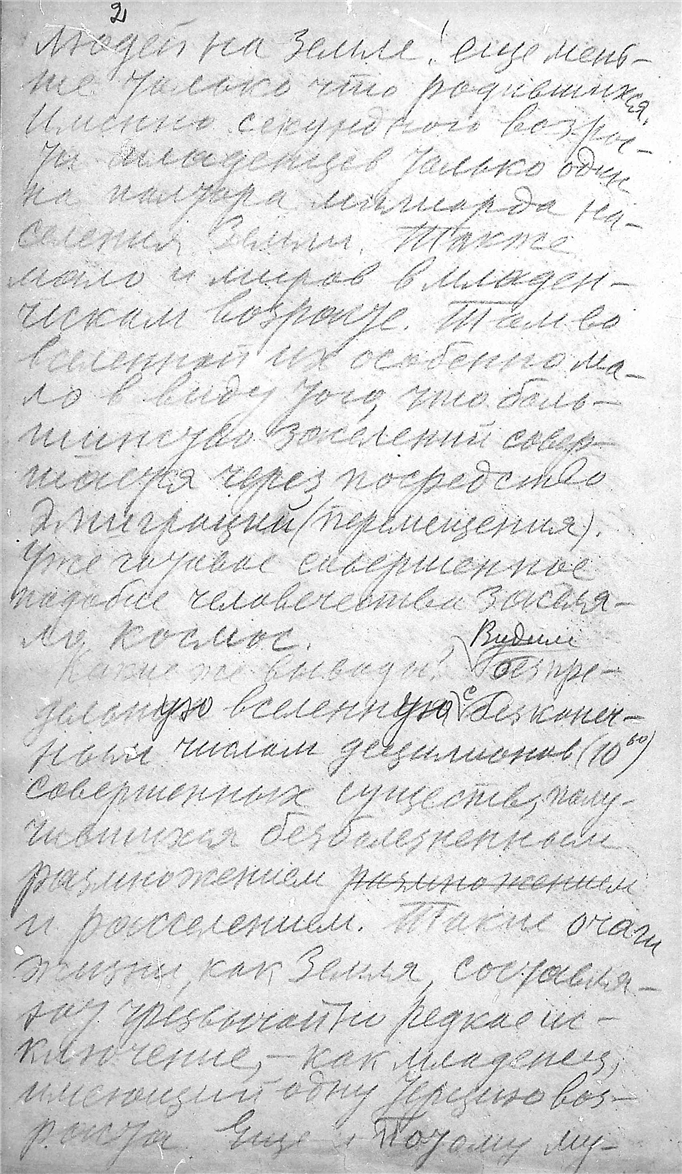 2
людей на Земле! еще мень-
ше только что родившихся.
Именно секундного возрас-
та младенцев только один
на полтора миллиарда на-
селения Земли. Также
мало и миров в младен-
ческом возрасте. Там во
вселенной их особенно ма-
ло в виду того, что боль-
шинство заселений совер-
шается через посредство
эмиграций (перемещения).
Уже готовое совершенное
подобие человечества заселя-
ло космос.
Какие же выводы? Видим
безпре-
дельную вселенную с безконеч-
ным числом децилионов (10⁶⁰)
совершенных существ, полу-
чившихся безболезненным
размножением размножением
и расселением. Такие очаги
жизни, как Земля, составля-
ют чрезвычайно редкое ис-
ключение, – как младенец,
имеющий одну терцию воз-
раста. Еще и потому му-